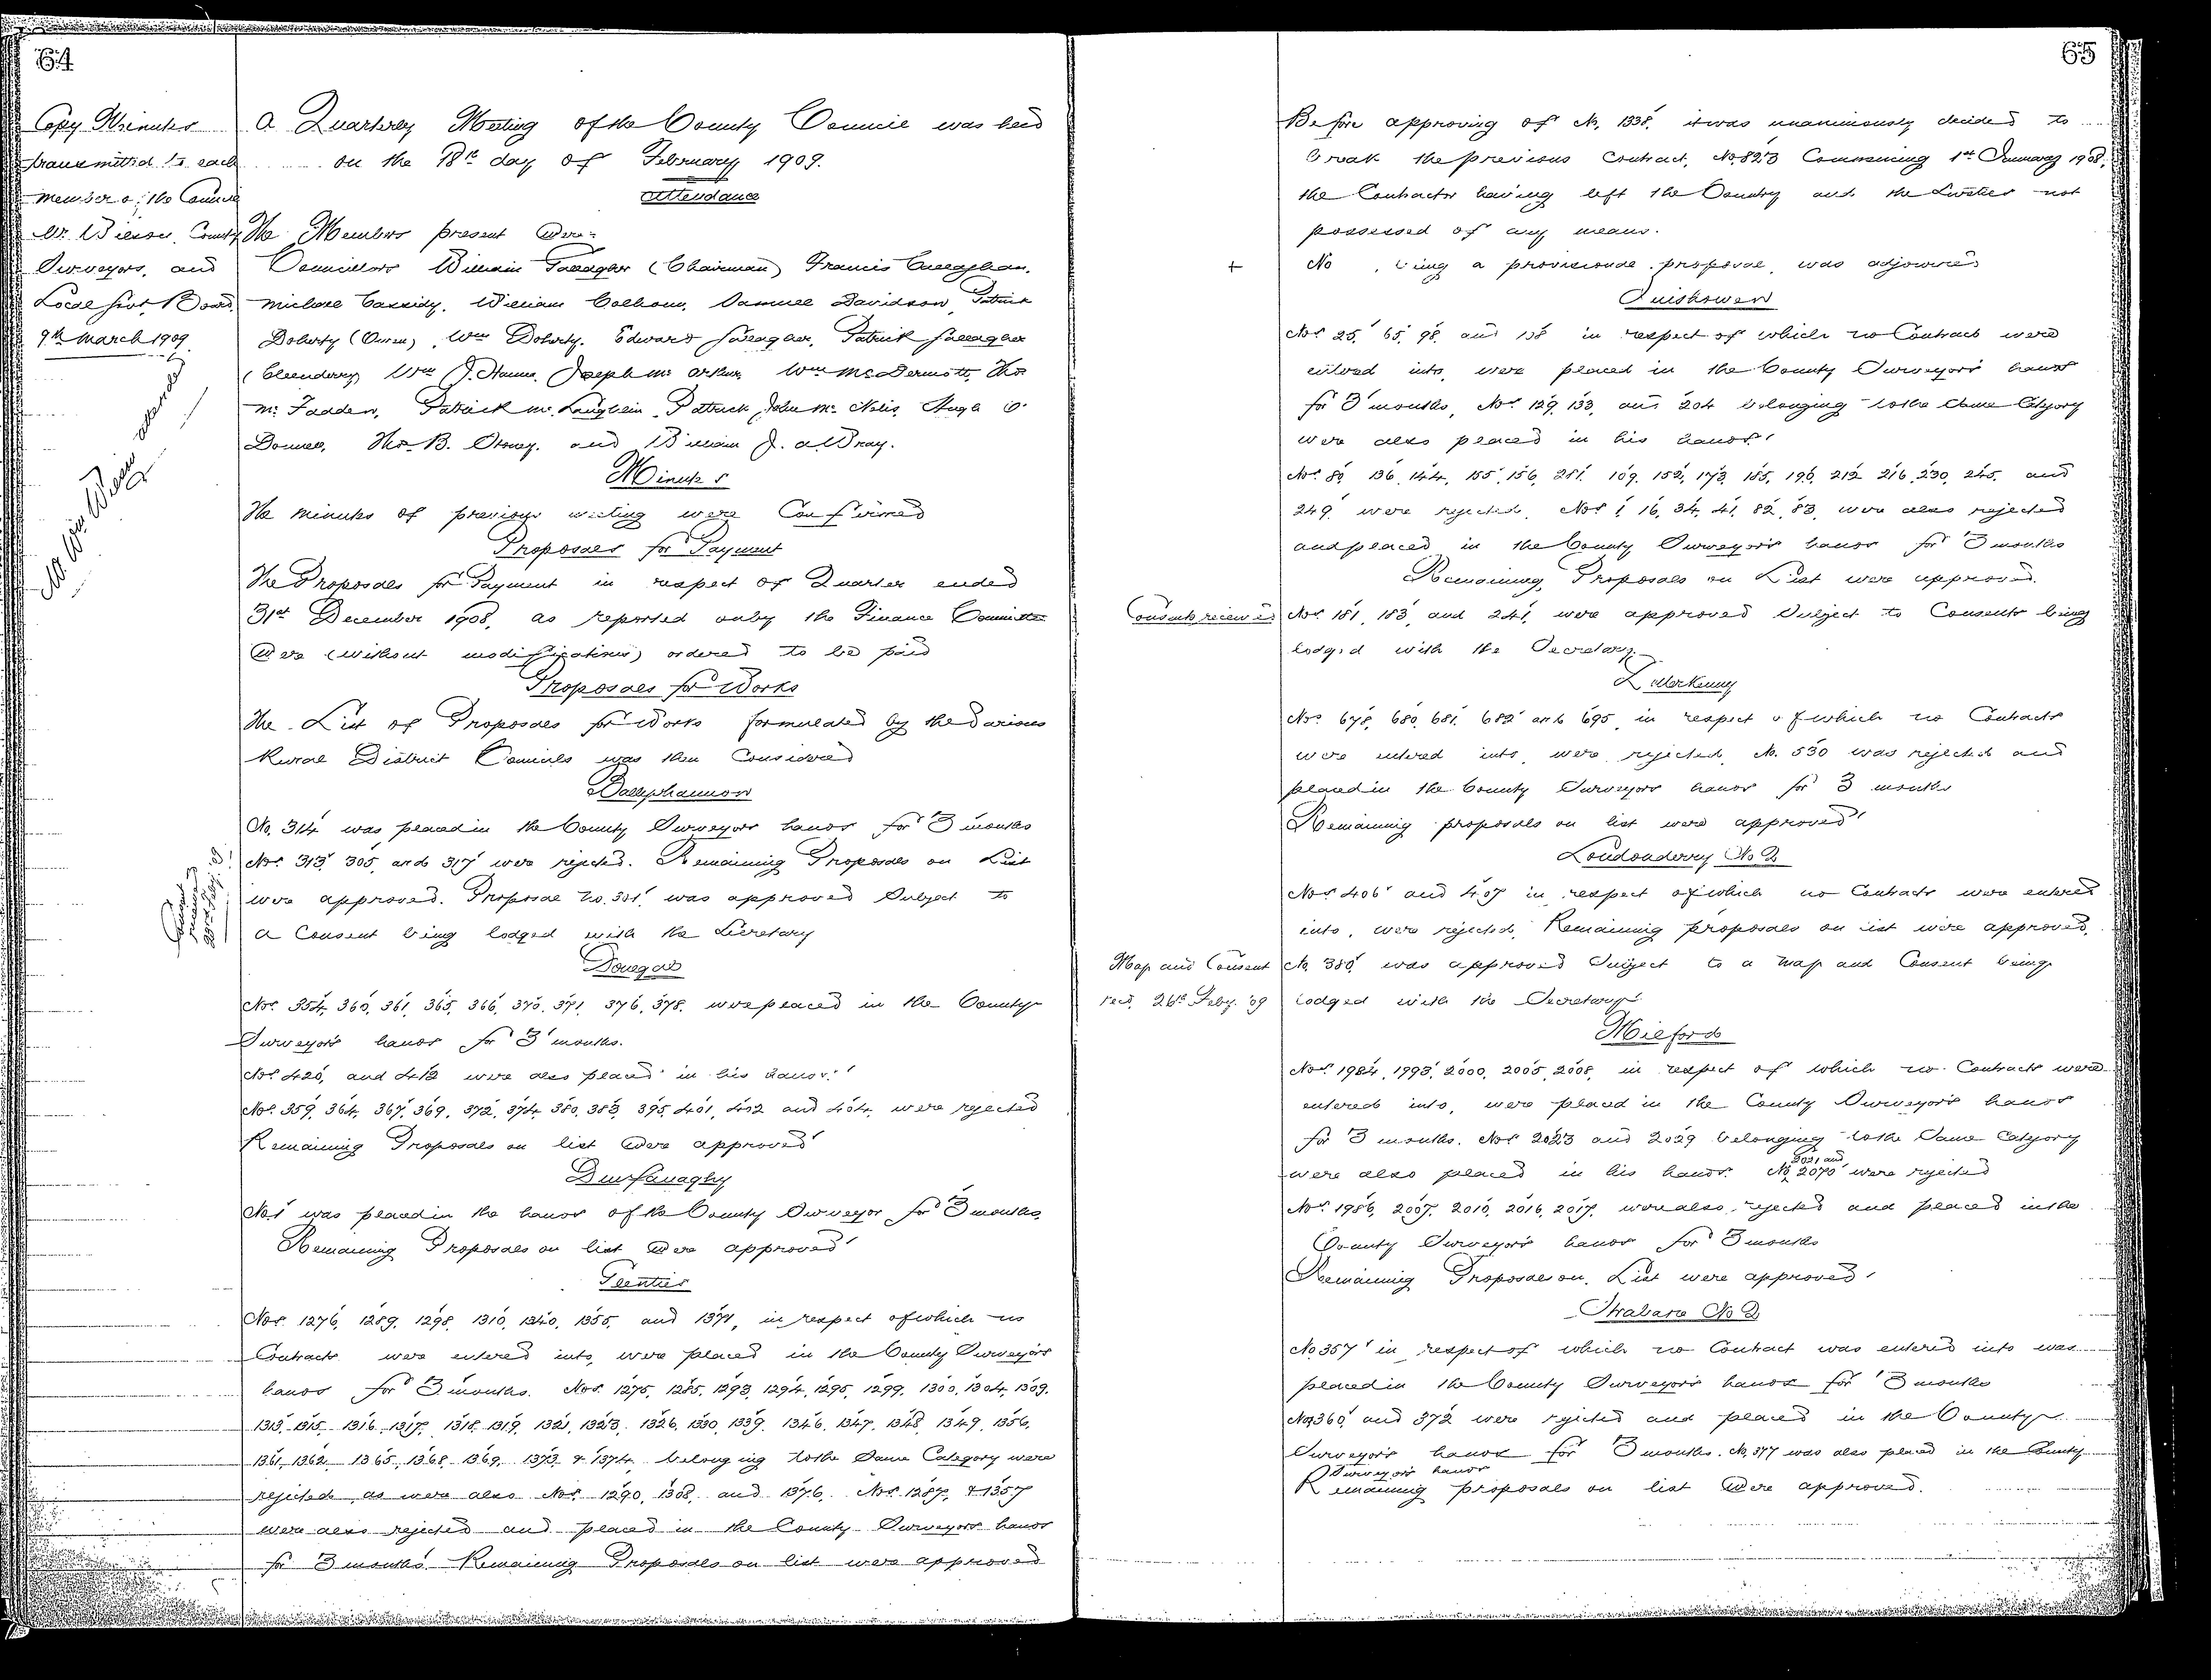 64
Copy Minutes
transmitted to each
Member of the Council
County
Surveyors, and
Local Govt Board
9th March 1909
A Quarterly Meeting of the County Council was held
on the 18th day of February 1909.
Attendance
The Members present were:-
Councillors William Gallagher (Chairman) Francis Callaghan,
Michael Cassidy, William Colhoun, Samuel Davidson, Patrick
Doherty (Owen), Wm Doherty, Edward Gallagher, Patrick Gallagher
(Glendowan) Wm J. Hanna, Joseph McArthur, Wm McDermott, Thos
McFadden, Patrick McLaughlin, Patrick John McNelis, Hugh O'
Donnell, Thos B. Stoney, and William J. A. Wray.
Minutes
The minutes of previous meeting were Confirmed
Proposals for Payment
The Proposals for Payment in respect of Quarter ended
31st December 1908, as reported on by the Finance Committee
were (without modifications) ordered to be paid
Proposals for Works
The List of Proposals for Works formulated by the Various
Rural District Councils was then Considered
Ballyshannon
No. 314 was placed in the County Surveyors hands for 3 months
Nos 313, 305, and 317 were rejected. Remaining Proposals on List
were approved. Proposal No. 301 was approved Subject to
a Consent being lodged with the Secretary
Donegal
Nos 354, 360, 361, 365, 366, 370, 371, 376, 378, were placed in the County
Surveyors hands for 3 months.
Nos 420, and 412 were also placed in his hands.
Nos. 359, 364, 367, 369, 372, 374, 380, 383, 395, 401, 402 and 404, were rejected
Remaining Proposals on list were approved
Dunfanaghy
No 1 was placed in the hands of the County Surveyor for 3 months,
Remaining Proposals on list were approved
Glenties
Nos. 1276, 1289, 1298, 1310, 1340, 1355, and 1371, in respect of which no
Contracts were entered into, were placed in the County Surveyors
hands for 3 months. Nos. 1275, 1285, 1293, 1294, 1295, 1299, 1300, 1304, 1309,
1313, 1315, 1316, 1317, 1318, 1319, 1321, 1323, 1326, 1330, 1339, 1346, 1347, 1348, 1349, 1356,
1361, 1362, 1365, 1368, 1369, 1373, & 1374, belonging to the Same Category were
rejected, as were also Nos 1290, 1308, and 1376. Nos 1287, & 1357
were also rejected and placed in the County Surveyors hands
for 3 months. Remaining Proposals on list were approved
65
Before approving of No. 1338, it was unanimously decided to
break the previous Contract, No. 823 Commencing 1st January 1908,
the Contractor having left the Country and the Sureties not
possessed of any means.
+ No , being a provisional proposal, was adjourned
Inishowen
Nos 25, 65, 98, and 138 in respect of which no Contracts were
entered into, were placed in the County Surveyors hands
for 3 months, Nos 129, 133, and 204 belonging to the Same Category
were also placed in his hands.
Nos. 80, 136, 144, 155, 156, 281, 109, 152, 173, 185, 190, 212, 216, 230, 245, and
249, were rejected, Nos 1, 16, 34, 41, 82, 83, were also rejected
and placed in the County Surveyors hands for 3 months
Remaining Proposals on List were approved.
Consents received
Nos. 181, 183, and 241, were approved Subject to Consents being
lodged with the Secretary.
Letterkenny
Nos. 678, 680, 681, 682 and 695, in respect of which no Contracts
were entered into, were rejected, No. 530 was rejected and
placed in the County Surveyors hands for 3 months
Remaining proposals on list were approved
Londonderry No 2
Nos 406 and 407 in respect of which no Contracts were entered
into, were rejected, Remaining proposals on list were approved.
Map and Consent
recd. 26th Feby. '09
No. 380, was approved Subject to a map and Consent being
lodged with the Secretary
Milford
Nos. 1984, 1993, 2000, 2005, 2008, in respect of which no Contracts were
entered into, were placed in the County Surveyors hands
for 3 months. Nos 2023 and 2029 belonging to the Same Category
were also placed in his hands. Nos 2031 and 2070 were rejected
Nos. 1986, 2007, 2010, 2016, 2017, were also rejected and placed in the
County Surveyors hands for 3 months
Remaining Proposals on List were approved.
Strabane No 2
No 357 in respect of which no Contract was entered into was
placed in the County Surveyors hands for 3 months
Nos 360 and 372 were rejected and placed in the County
Surveyors hands for 3 months. No. 377 was also placed in the County
Surveyors hands
Remaining proposals on list were approved.